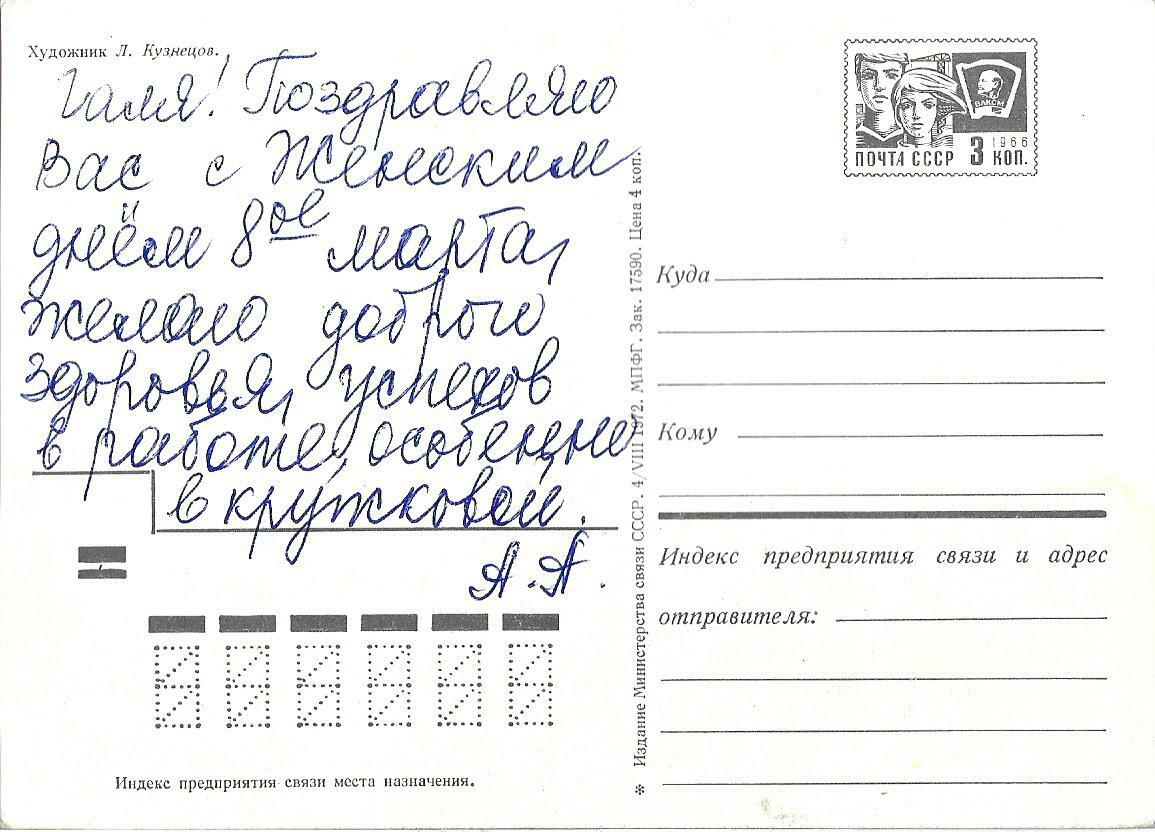 Художник Л. Кузнецов.
Галя! Поздравляю
Вас с Женским
днём 8ое марта,
желаю доброго
здоровья, успехов
в работе, особенно
в кружковой.
А.А.
Индекс предприятия связи места назначения.
* Издание Министерства связи СССР. 4/VIII 1972. МПФГ. Зак. 17590. Цена 4 коп.
ВЛКСМ
1966
ПОЧТА СССР 3 КОП.
Куда
Кому
Индекс предприятия связи и адрес
отправителя: